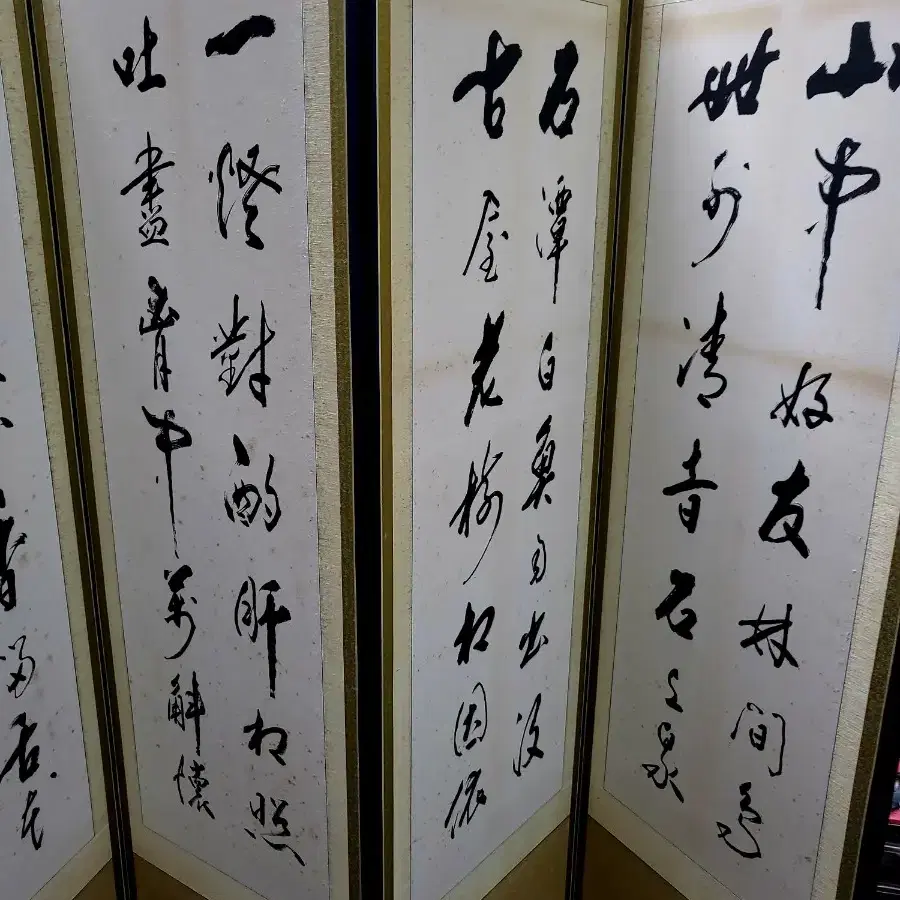 山中好友林間鳥
世外清音石上泉
石潭白魚自出没
古屋老樹相因依
一燈對酌肝相照
吐盡胷中萬斛懷